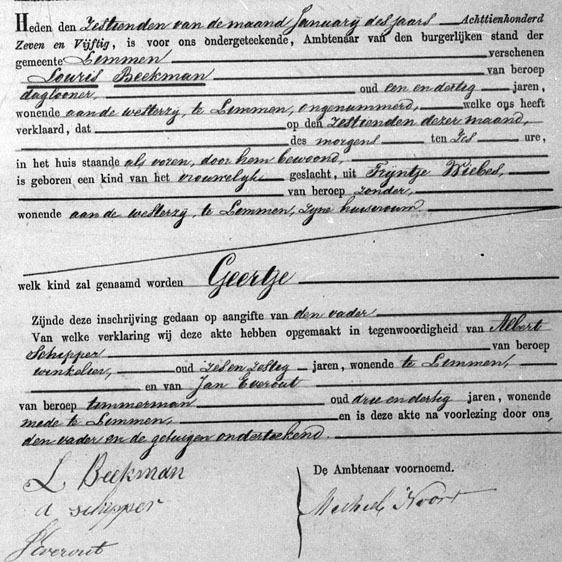 Heden den Zestienden van de maand January des jaars Achttienhonderd
Zeven en Vijftig, is voor ons ondergeteekende, Ambtenaar van den burgerlijken stand der
gemeente Limmen verschenen
Louris Beekman van beroep
daglooner, oud een en dertig jaren,
wonende aan de westerzy, te Limmen, ongenummerd, welke ons heeft
verklaard, dat op den Zestienden dezer maand,
des morgens ten Zes ure,
in het huis staande als voren, door hem bewoond,
is geboren een kind van het vrouwelyk geslacht, uit Trijntje Wiebes,
van beroep zonder,
wonende aan de westerzy, te Limmen, zyne huisvrouw
welk kind zal genaamd worden Geertje
Zijnde deze inschrijving gedaan op aangifte van den vader
Van welke verklaring wij deze akte hebben opgemaakt in tegenwoordigheid van Albert
Schipper van beroep
winkelier, oud Zes en Zestig jaren, wonende te Limmen,
en van Jan Everout
van beroep timmerman oud drie en dertig jaren, wonende
mede te Limmen, en is deze akte na voorlezing door ons,
den vader en de getuigen onderteekend.
De Ambtenaar voornoemd.
L Beekman
a schipper
J Everout
Noort